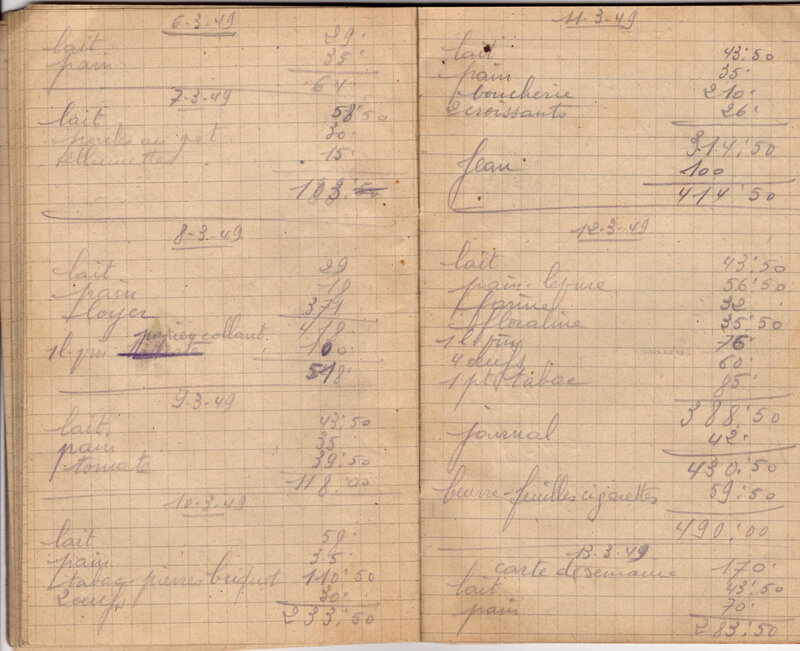 6-3-49
lait 29.
pain 35.
64.
7-3-49
lait 58.50
poule au pot 30.
allumettes 15.
103.50
8-3-49
lait 29
pain 18
loyer 371
418.
papier collant
1 l. 100.
518.
9-3-49
lait 43.50
pain 35
tomate 39.50
118.00
10-3-49
lait 58.
pain 35.
tabac-pierres briquet 110.50
2 oeufs 30.
233.50
11-3-49
lait 43.50
pain 35.
boucherie 210.
2 croissants 26.
314.50
Jean 100
414.50
12-3-49
lait 43.50
pain-levure 56.50
farine 32
floraline 35.50
1 l 76.
4 oeufs 60.
1 pt tabac 85.
388.50
journal 42.
430.50
beurre-feuilles cigarettes 59.50
490.00
13-3-49
carte de semaine 170.
lait 43.50
pain 70.
283.50